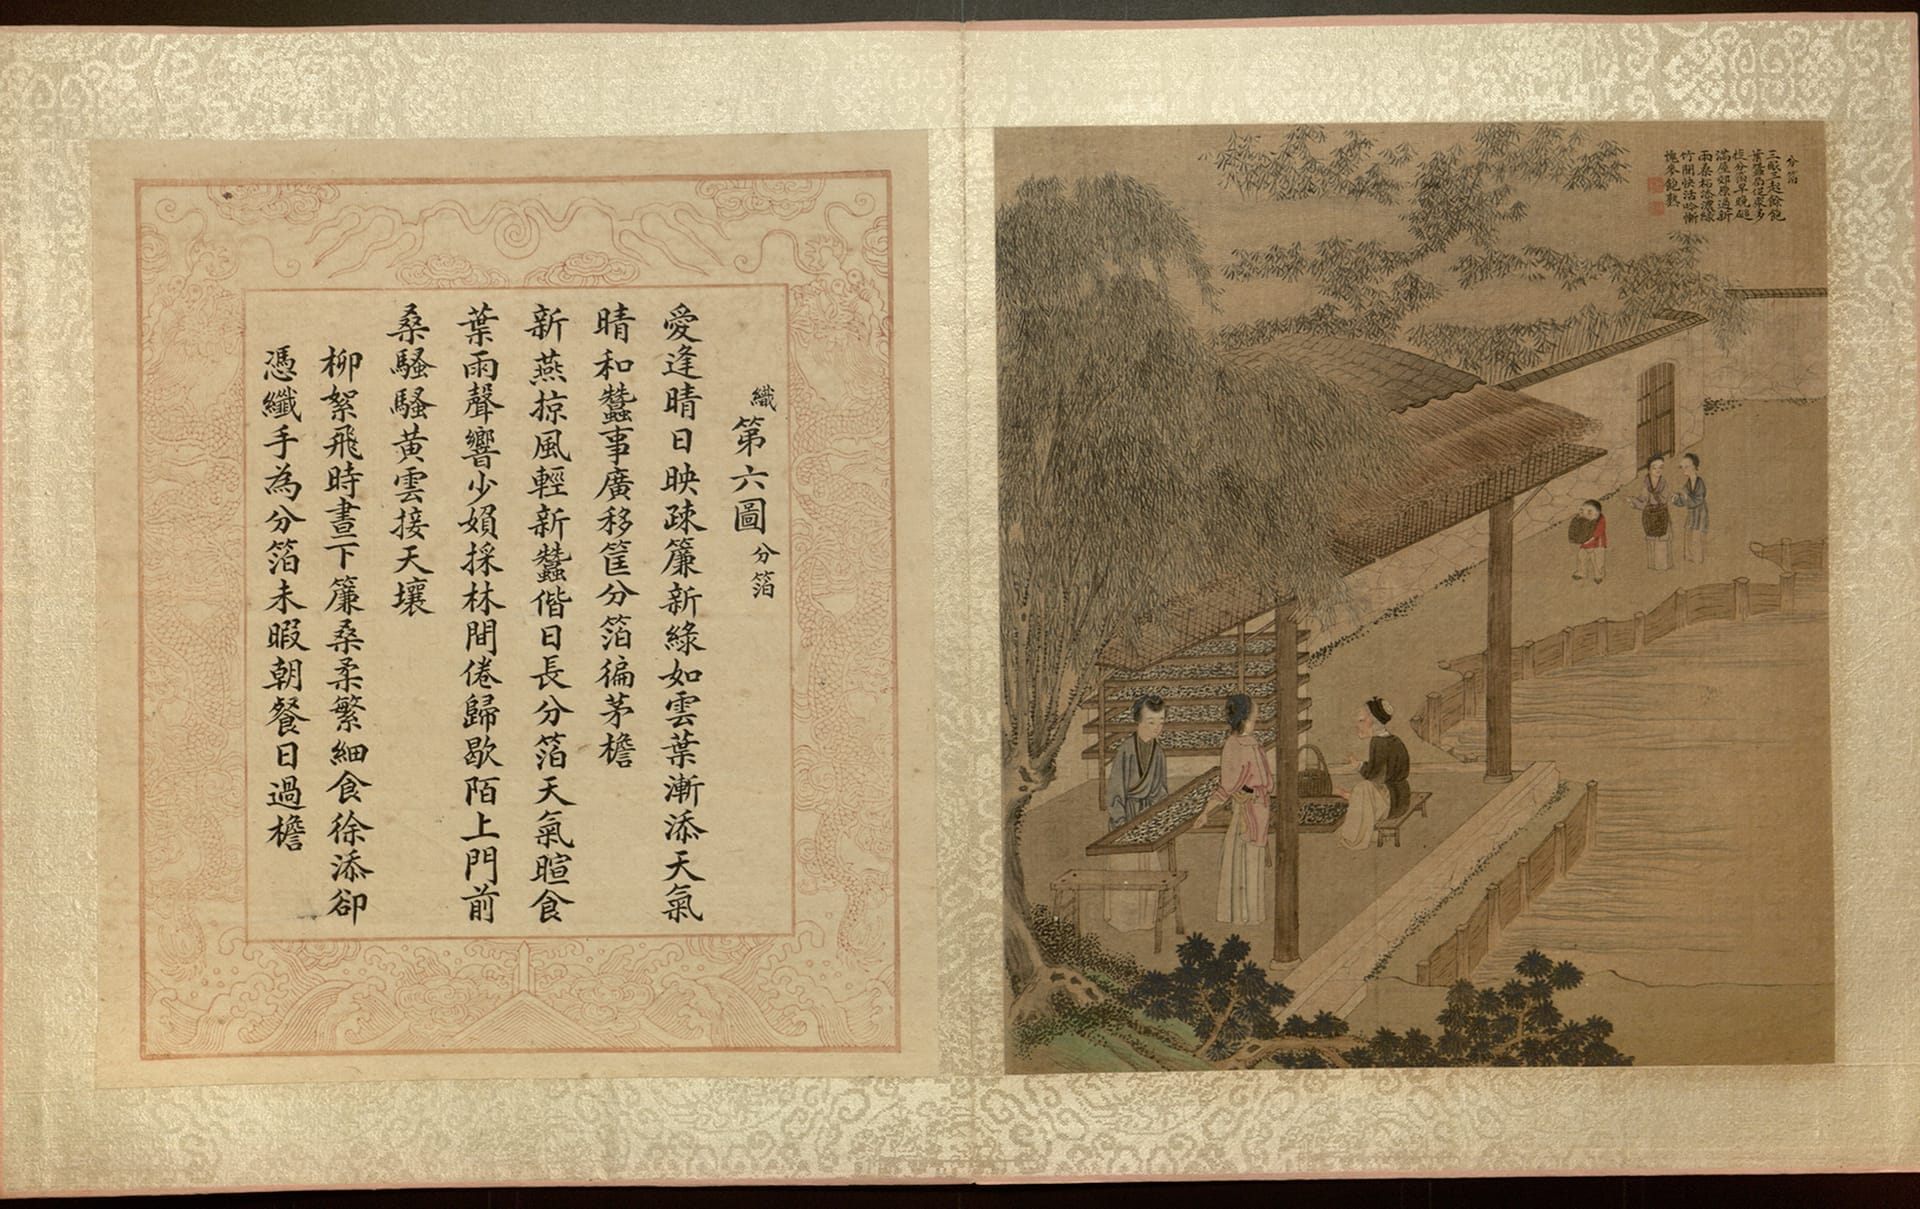 分箔
三眠三起餘飽
葉蠶局促衆多
旋分箔早晚磓
滿屋郊原過新
雨桑柘添濃綠
竹間快活吟慚
愧麥飽熟
織第六圖分箔
愛逢晴日映疎簾新綠如雲葉漸添天氣
晴和蠶事廣移筐分箔徧茅檐
新燕掠風輕新蠶偕日長分箔天氣暄食
葉雨聲響少娟採林間倦歸歇陌上門前
桑騷騷黃雲接天壤
柳絮飛時晝下簾桑柔繁細食徐添卻
憑纖手為分箔未暇朝餐日過檐